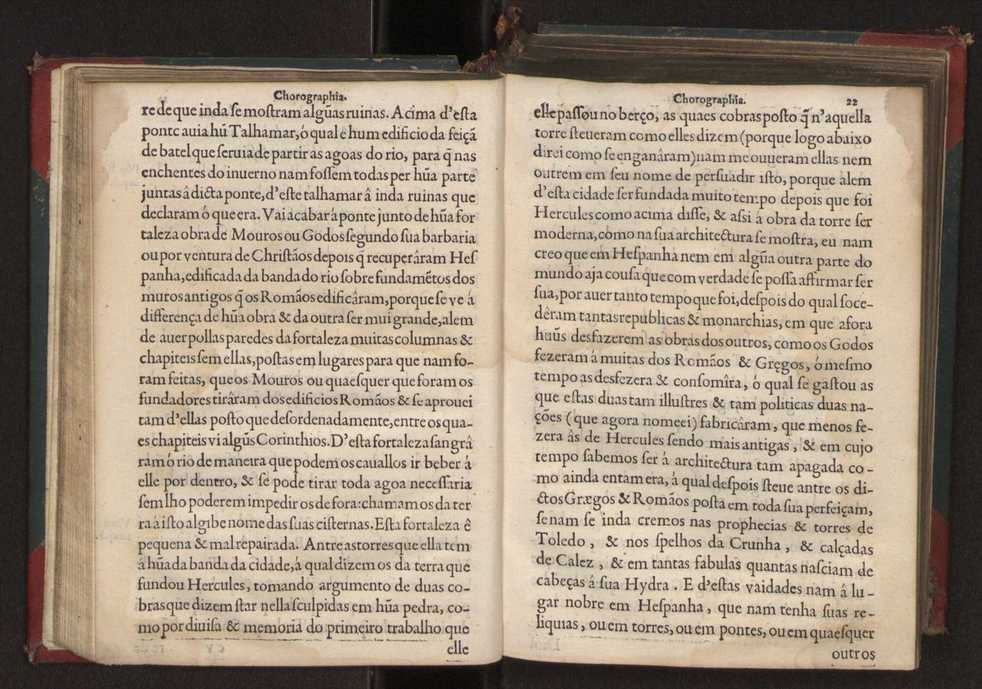 Chorographia.
re de que inda se mostram algũas ruinas. Acima d'esta
ponte auia hũ Talhamar, ó qual é hum edificio da feiçã
de batel que seruia de partir as agoas do rio, para q̃ nas
enchentes do inuerno nam fossem todas per hũa parte
juntas â dicta ponte, d'este talhamar â inda ruinas que
declaram ó que era. Vai acabar á ponte junto de hũa for
taleza obra de Mouros ou Godos segundo sua barbaria
ou por ventura de Christãos depois q̃ recuperáram Hes
panha, edificada da banda do rio sobre fundamẽtos dos
muros antigos q̃ os Romãos edificâram, porque se ve á
differença de hũa obra & da outra ser mui grande, alem
de auer pollas paredes da fortaleza muitas columnas &
chapiteis sem ellas, postas em lugares para que nam fo-
ram feitas, que os Mouros ou quaesquer que foram os
fundadores tirâram dos edificios Romãos & se aprouei
tam d'ellas posto que desordenadamente, entre os qua-
es chapiteis vi algũs Corinthios. D'esta fortaleza sangrâ
ram ó rio de maneira que podem os cauallos ir beber á
elle por dentro, & se pode tirar toda agoa necessaria
sem lho poderem impedir os de fora: chamam os da ter
ra à isto algibe nome das suas cisternas. Esta fortaleza ê
pequena & mal repairada. Antre as torres que ella tem
á hũa da banda da cidade, à qual dizem os da terra que
fundou Hercules, tomando argumento de duas co-
bras que dizem star nella sculpidas em hũa pedra, co-
mo por diuisa & memoria do primeiro trabalho que
elle
Chorographia.
22
elle passou no berço, as quaes cobras posto q̃ n'aquella
torre steueram como elles dizem (porque logo abaixo
direi como se enganâram) nam me ouueram ellas nem
outrem em seu nome de persuadir isto, porque alem
d'esta cidade ser fundada muito tempo depois que foi
Hercules como acima disse, & assi á obra da torre ser
moderna, como na sua architectura se mostra, eu nam
creo que em Hespanha nem em algũa outra parte do
mundo aja cousa que com verdade se possa affirmar ser
sua, por auer tanto tempo que foi, despois do qual soce-
dêram tantas republicas & monarchias, em que afora
huũs desfazerem as obras dos outros, como os Godos
fezeram á muitas dos Romãos & Gregos, ó mesmo
tempo as desfezera & consomîra, ó qual se gastou as
que estas duas tam illustres & tam politicas duas na-
ções (que agora nomeei) fabricâram, que menos fe-
zera âs de Hercules sendo mais antigas, & em cujo
tempo sabemos ser á architectura tam apagada co-
mo ainda entam era, á qual despois steue antre os di-
ctos Grægos & Romãos posta em toda sua perfeiçam,
se nam se inda cremos nas prophecias & torres de
Toledo, & nos spelhos da Crunha, & calçadas
de Calez, & em tantas fabulas quantas nasciam de
cabeças á sua Hydra. E d'estas vaidades nam â lu-
gar nobre em Hespanha, que nam tenha suas re-
liquias, ou em torres, ou em pontes, ou em quaesquer
outros